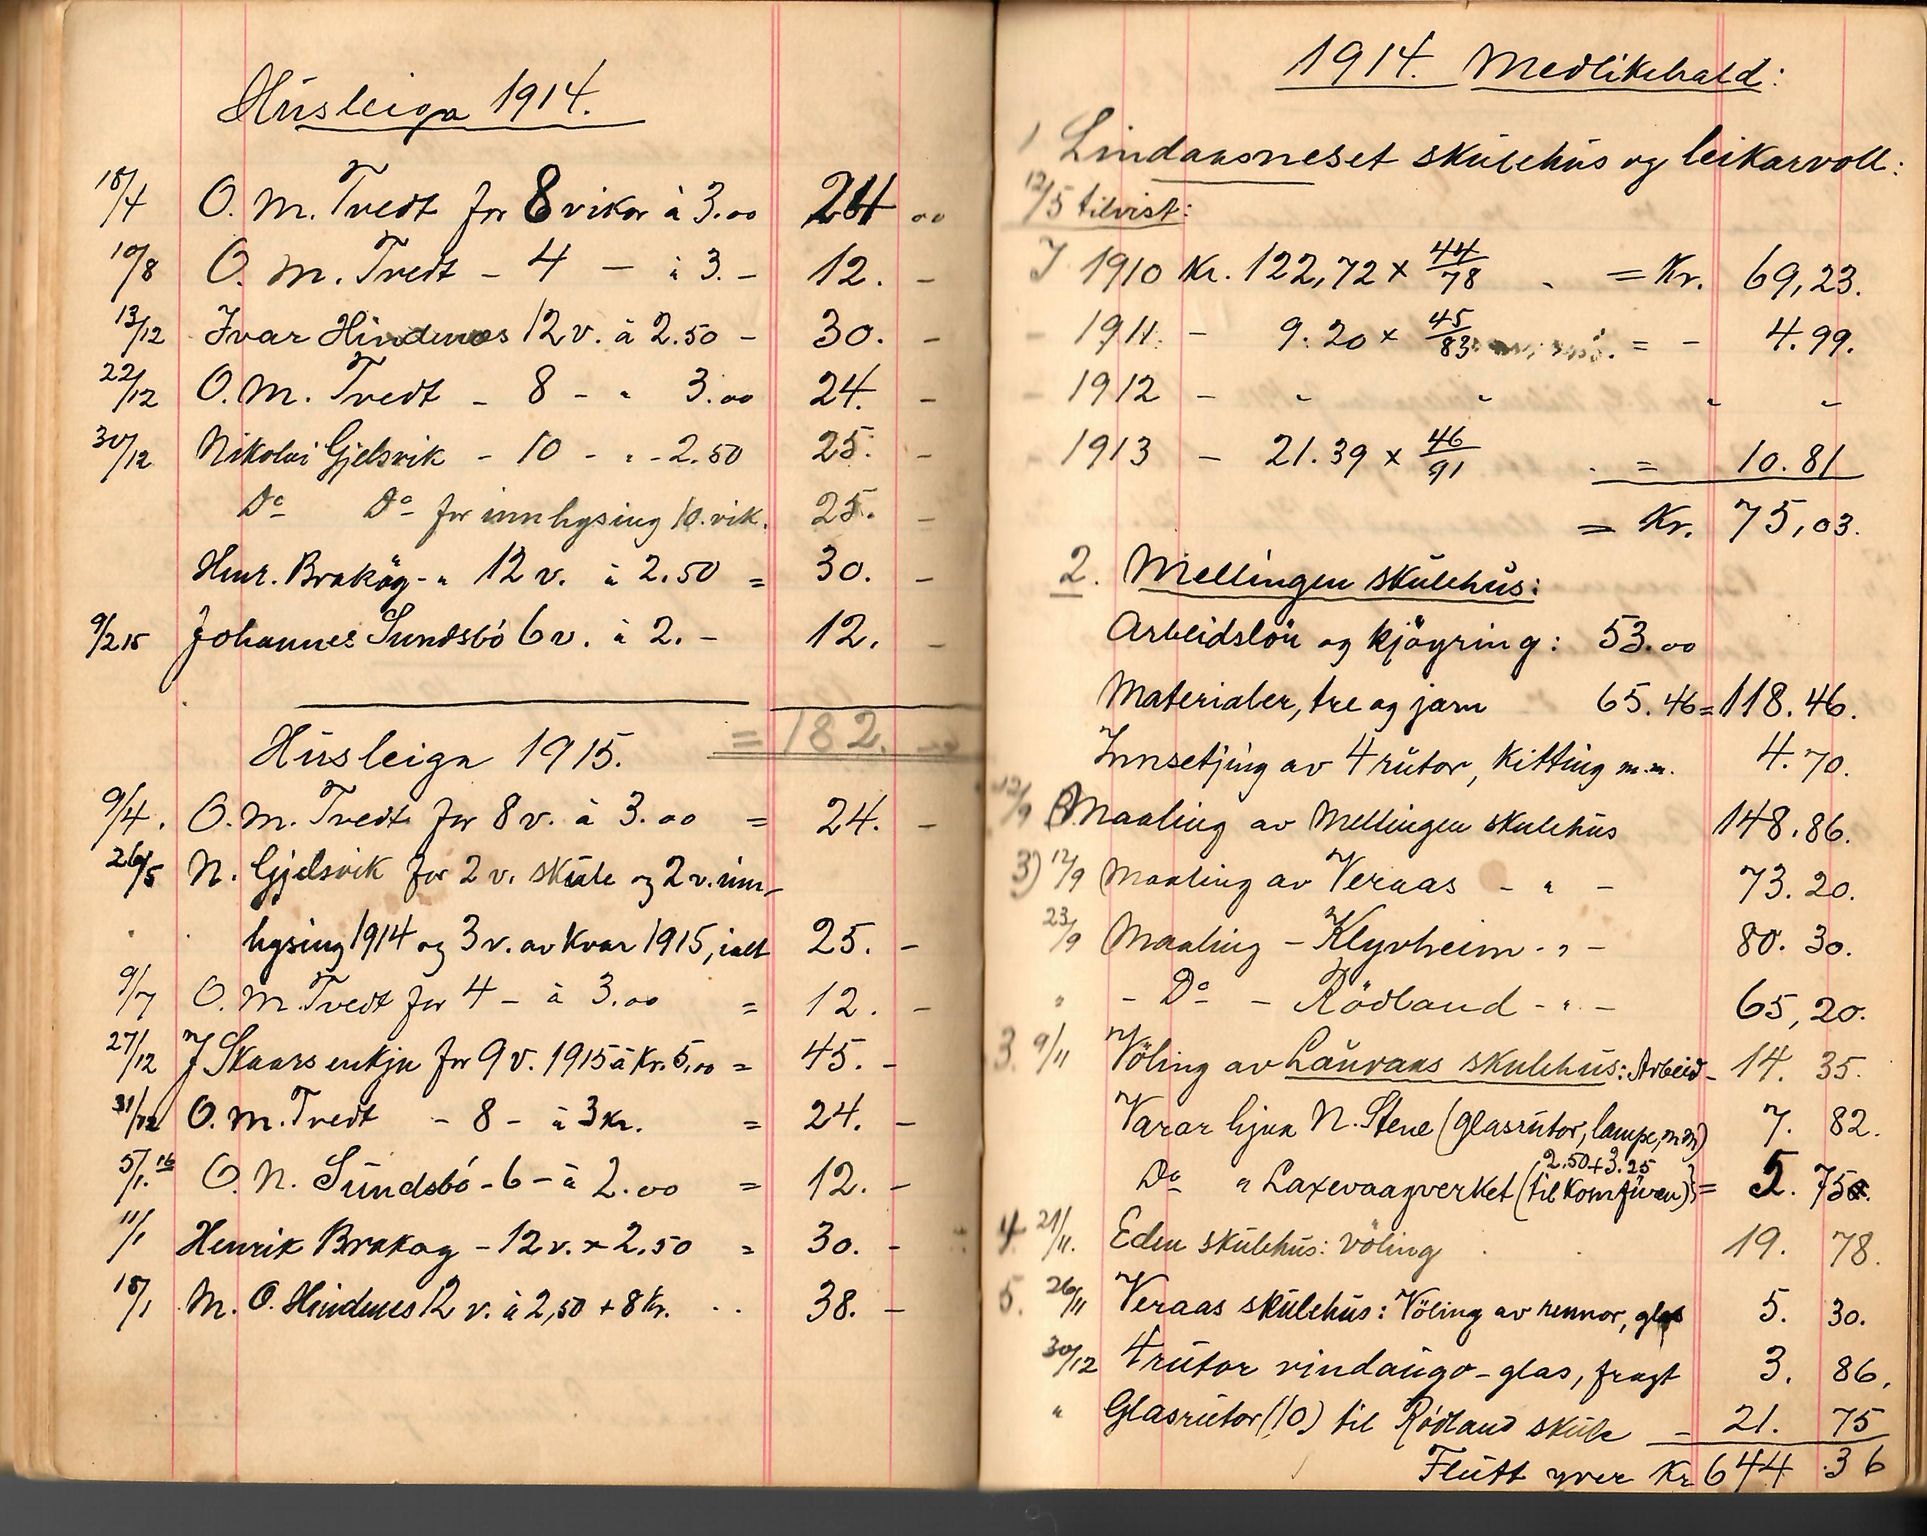 Husleiga 1914.
18/4 O. M. Tvedt for 8 vikor à 3.00 24 00
10/8 O. M. Tvedt - 4 - à 3. - 12. -
13/12 Ivar Hindenes 12 v. à 2.50 - 30. -
22/12 O. M. Tvedt - 8 - " 3.00 24. -
30/12 Nikolai Gjelsvik - 10 - " - 2.50 25. -
Do Do for innhysing 10. vik. 25. -
Henr. Brakøy - " 12 v. à 2.50 = 30. -
9/2 15 Johannes Sundsbö 6 v. à 2. - 12. -
= 182. -
Husleiga 1915.
9/4. O. M. Tvedt for 8 v. à 3.00 = 24. -
26/5 N. Gjelsvik for 2 v. skule og 2 v. inn-
hysing 1914 og 3 v. av kvar 1915, ialt 25. -
9/7 O. M. Tvedt for 4 - à 3.00 = 12. -
27/12 J Skaars enkja for 9 v. 1915 à Kr. 5,00 = 45. -
31/12 O. M. Tvedt - 8 - à 3 kr. = 24. -
5/1. 16 O. N. Sundsbö - 6 - à 2.00 = 12. -
11/1 Henrik Brakøy - 12 v. × 2.50 = 30. -
18/1 M. O. Hindenes 12 v. à 2,50 + 8 Kr. .. 38. -
1914. Medlikehald:
1 Lindaasneset skulehus og leikarvoll:
12/5 tilvist:
I 1910 Kr. 122,72 × 44/78 = Kr. 69,23.
- 1911. - 9.20 × 45/83 = - 4.99.
- 1912 - " " " "
- 1913 - 21.39 × 46/91 . = 10.81
= Kr. 75,03.
2. Mellingen skulehus:
Arbeidslön og kjöyring: 53.00
Materialer, tre og jarn 65.46 = 118.46.
Innsetjing av 4 rutor, kitting m.m. 4.70.
12/9 Maaling av Mellingen skulehus 148.86.
3) 12/9 Maaling av Veraas - " - 73.20.
23/9 Maaling - Klyvheim - " - 80.30.
" - Do - Rödland - " - 65,20.
3. 9/11 Völing av Lauvaas skulehus: Arbeid - 14. 35.
Varar hjaa N. Stene (glasrutor, lampe, m m) 7. 82.
2.50 + 3.25
Do " Laxevaagverket (til komfuren)} = 5. 75.
4. 21/11. Eden skulehus: völing 19. 78.
5. 26/11 Veraas skulehus: Völing av rennor, glas 5. 30.
30/12 4 rutor vindaugo-glas, fragt 3. 86.
" Glasrutor (10) til Rödland skule - 21. 75
Flutt yver Kr 644 .36